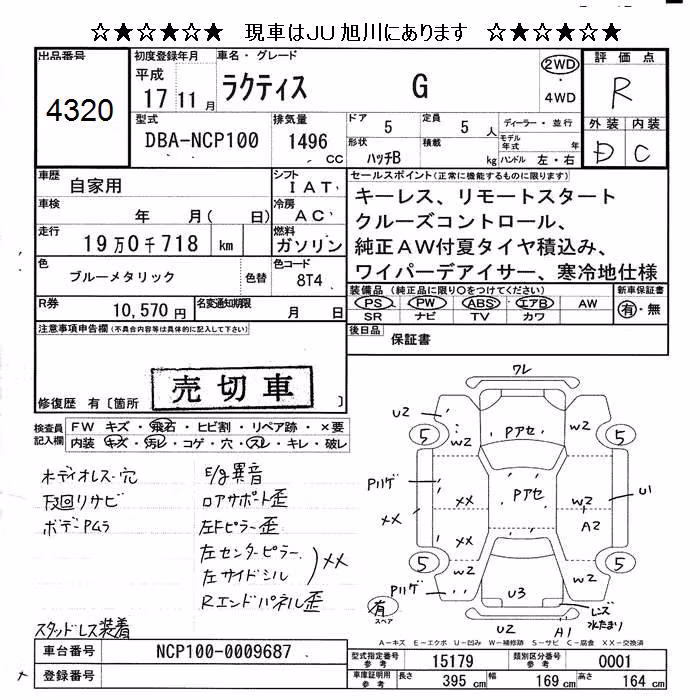 ☆★☆★☆★ 現車はJU旭川にあります ☆★☆★☆★
出品番号
4320
初度登録年月
平成
17 11月
車名・グレード
ラクティス G
2WD
・
4WD
評価点
R
外装 内装
D C
型式
DBA-NCP100
排気量
1496
CC
ドア
5
定員
5 人
形状
ハッチB
積載
kg
ディーラー・並行
モデル
年式 年
ハンドル 左・右
車歴
自家用
シフト
IAT
車検
年 月( 日)
冷房
AC
走行
19万0千718 km
燃料
ガソリン
色
ブルーメタリック
色替
色コード
8T4
R券
10,570円
名変通知期限
月 日
セールスポイント(正常に機能するものに限ります)
キーレス、リモートスタート
クルーズコントロール、
純正AW付夏タイヤ積込み、
ワイパーデアイサー、寒冷地仕様
装備品 (純正品に限り○をつけてください)
PS PW ABS エアB AW
SR ナビ TV カワ
新車保証書
有・無
後日品
保証書
注意事項申告欄(不具合内容等は具体的に記入して下さい)
売切車
修復歴 有〔箇所 〕
検査員
記入欄
FW キズ・飛石・ヒビ割・リペア跡・×要
内装 キズ・汚レ・コゲ・穴・スレ・キレ・破レ
オーディオレス・穴
下回りサビ
ボデーPムラ
E/g異音
ロアサポート歪
左Fピラー歪
左センターピラー
左サイドシル
XX
Rエンドパネル歪
スタッドレス装着
ワレ
U2
W2
Pアセ
W2
5
5
Pハゲ
XX
XX
Pアセ
W2
A2
U1
XX
W2
5
5
Pハゲ
W2
U3
W2
レンズ
水たまり
有
スペア
U2
A1
A-キズ E-エクボ U-凹み W-補修跡 S-サビ C-腐食 XX-交換済
車台番号
NCP100-0009687
登録番号
型式指定番号
参考
15179
類別区分番号
参考
0001
車庫証明用
参考
長さ
395 cm
幅
169 cm
高さ
164 cm